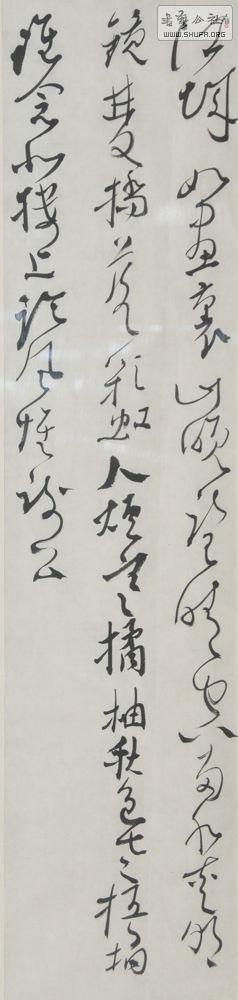 江城如畫裏山晚望晴空兩水夾明
鏡雙橋落彩虹人煙寒橘柚秋色老梧桐
誰念北樓上臨風懷謝公
WWW.SHUFA.ORG